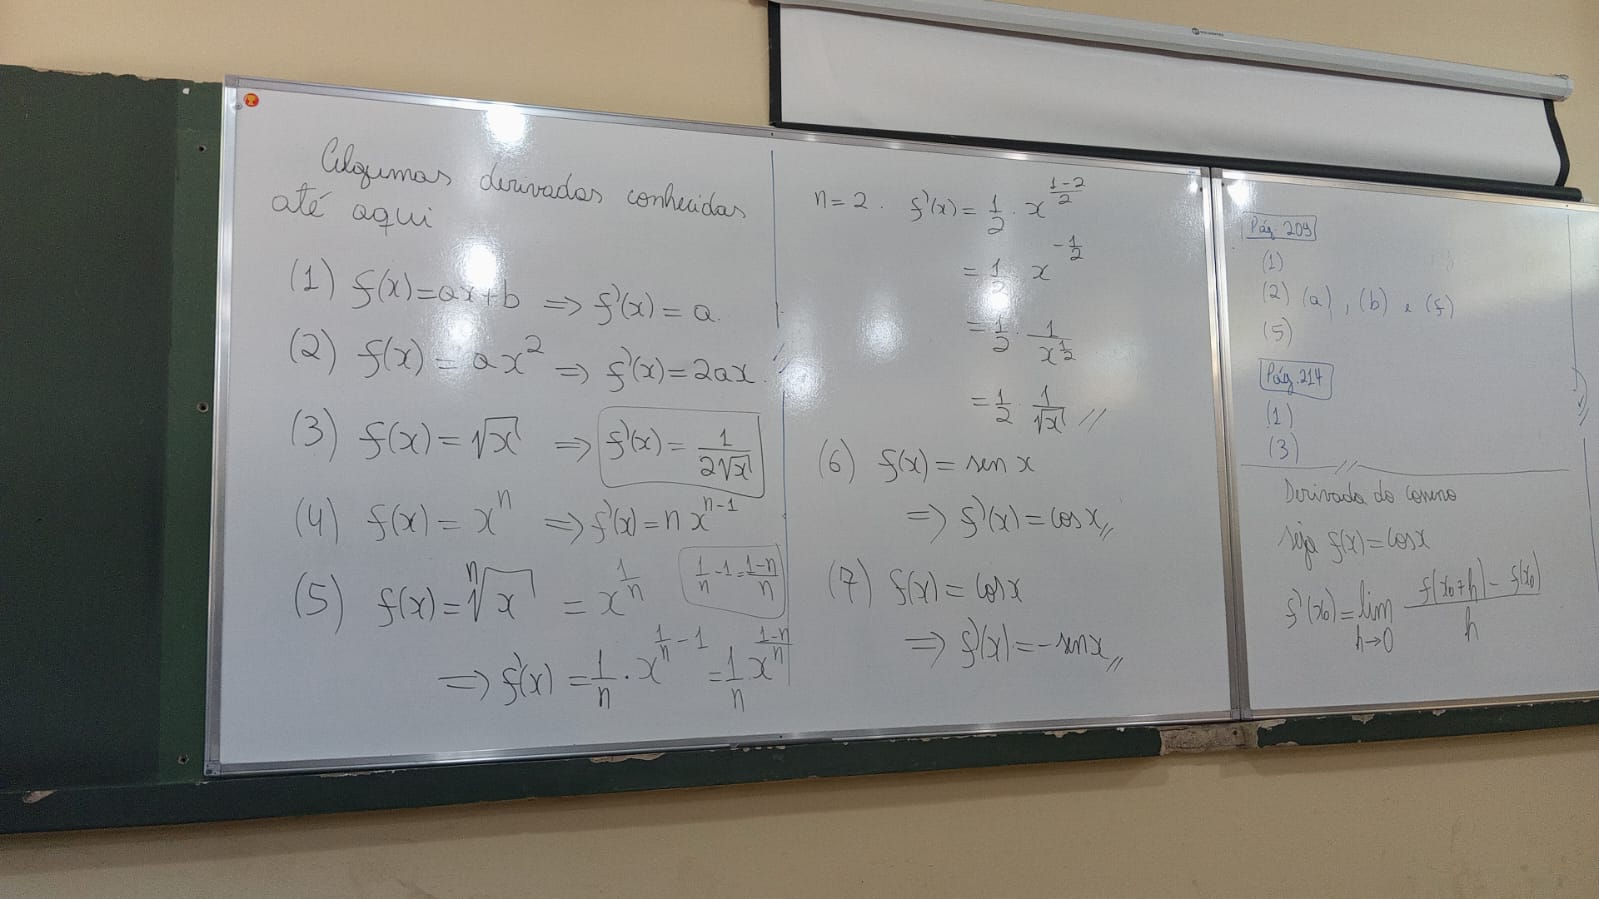 Algumas derivadas conhecidas
até aqui
(1) f(x)=ax+b ⇒ f'(x)=a.
(2) f(x)=ax² ⇒ f'(x)=2ax.
(3) f(x)=√x ⇒ f'(x)=1/(2√x)
(4) f(x)=xⁿ ⇒ f'(x)=n x^(n-1)
(5) f(x)=ⁿ√x = x^(1/n)
1/n -1 = (1-n)/n
⇒ f'(x)=1/n · x^(1/n - 1) = 1/n x^((1-n)/n)
n=2. f'(x)=1/2 · x^((1-2)/2)
= 1/2 x^(-1/2)
= 1/2 · 1/x^(1/2)
= 1/2 · 1/√x //
(6) f(x)=sen x
⇒ f'(x)=cos x //
(7) f(x)=cos x
⇒ f'(x)=-sen x //
Pág. 209
(1)
(2) (a), (b) e (f)
(5)
Pág. 214
(1)
(3)
//
Derivada do cosseno
seja f(x)=cos x
f'(x₀)=lim h→0 (f(x₀+h) - f(x₀))/h